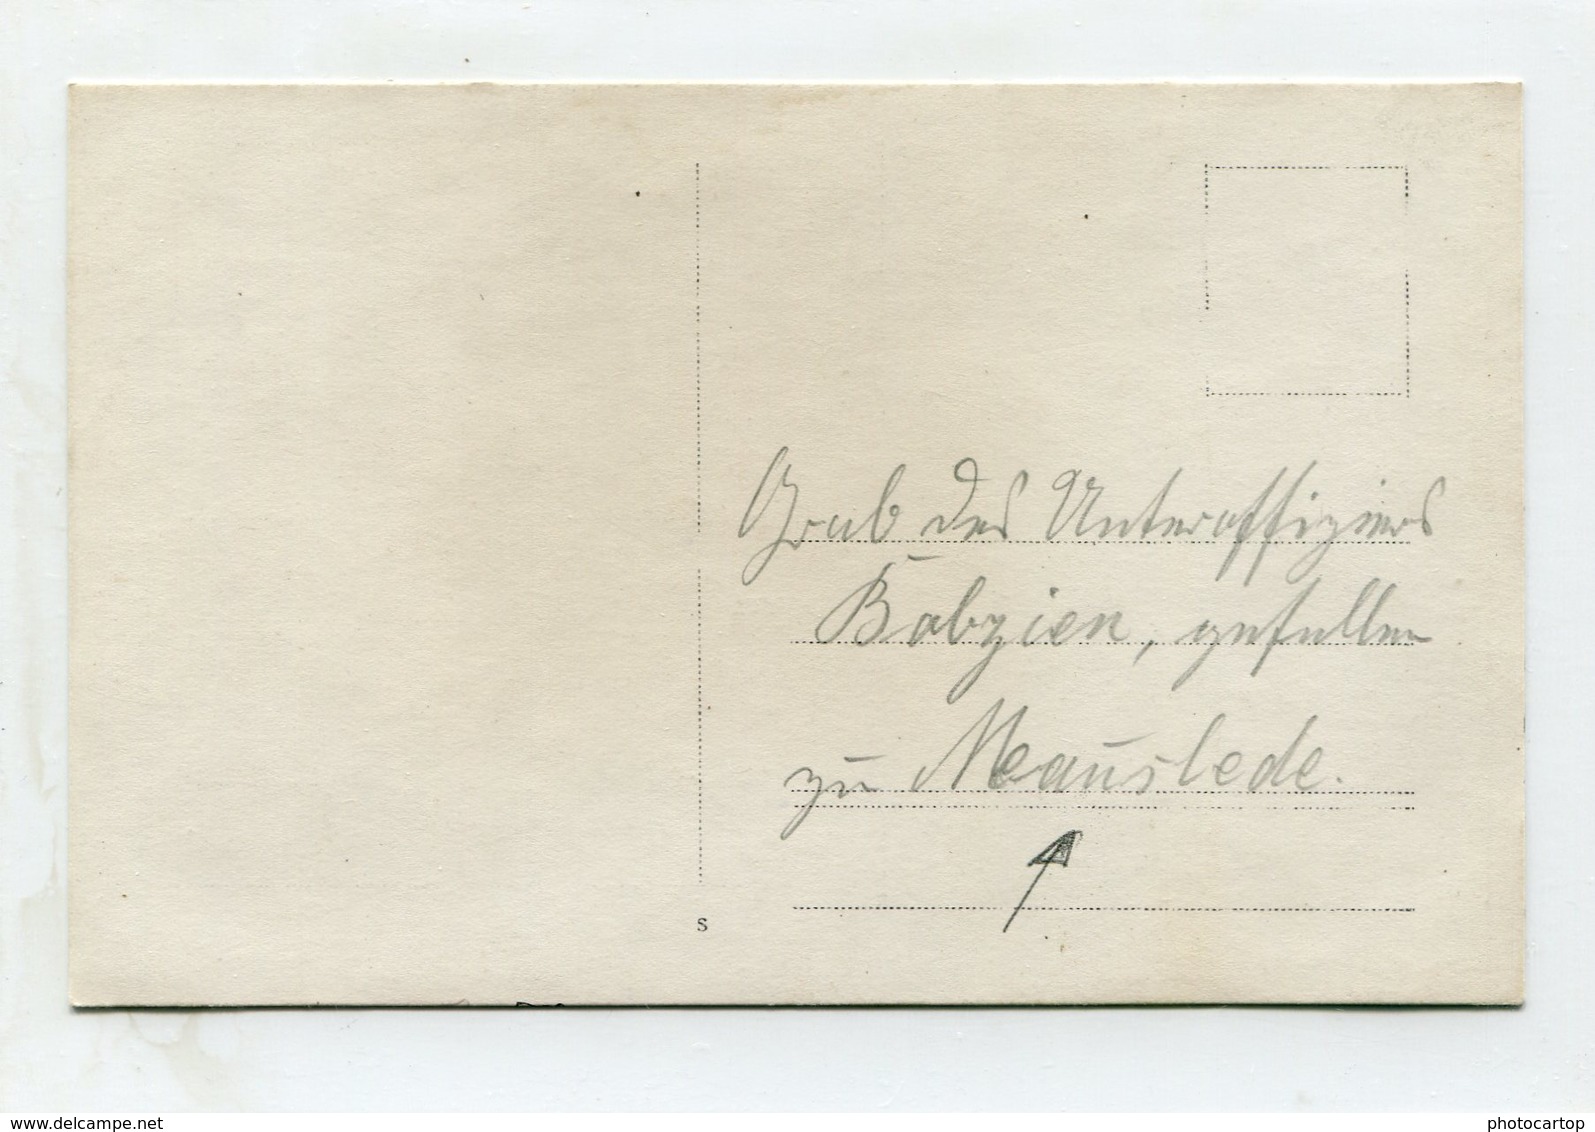 Grab des Unteroffiziers
Babzien, gefallen
zu Meauslede.
S
www.delcampe.net
photocartop